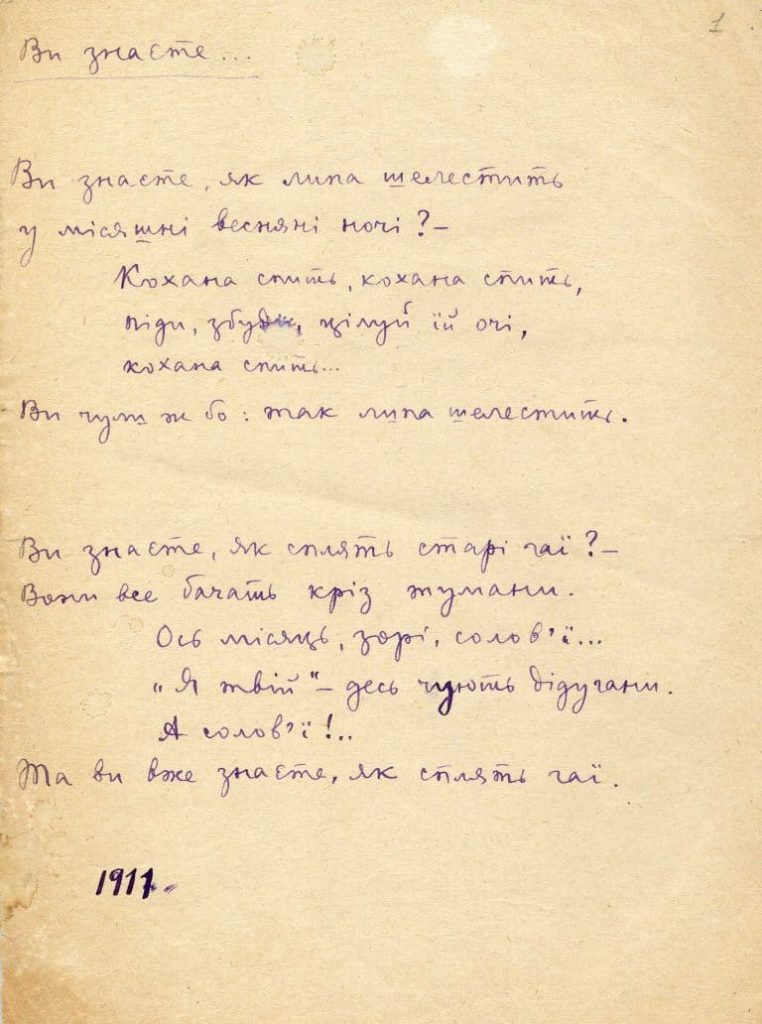 1
Ви знаєте...
Ви знаєте, як липа шелестить
у місяшні весняні ночі?—
Кохана спить, кохана спить,
піди, збуди, цілуй їй очі,
кохана спить...
Ви чули ж бо: так липа шелестить.
Ви знаєте, як сплять старі гаї?—
Вони все бачать крізь тумани.
Ось місяць, зорі, солов'ї...
„Я твій"— десь чують дідугани.
А солов'ї!..
Та ви вже знаєте, як сплять гаї.
1911.